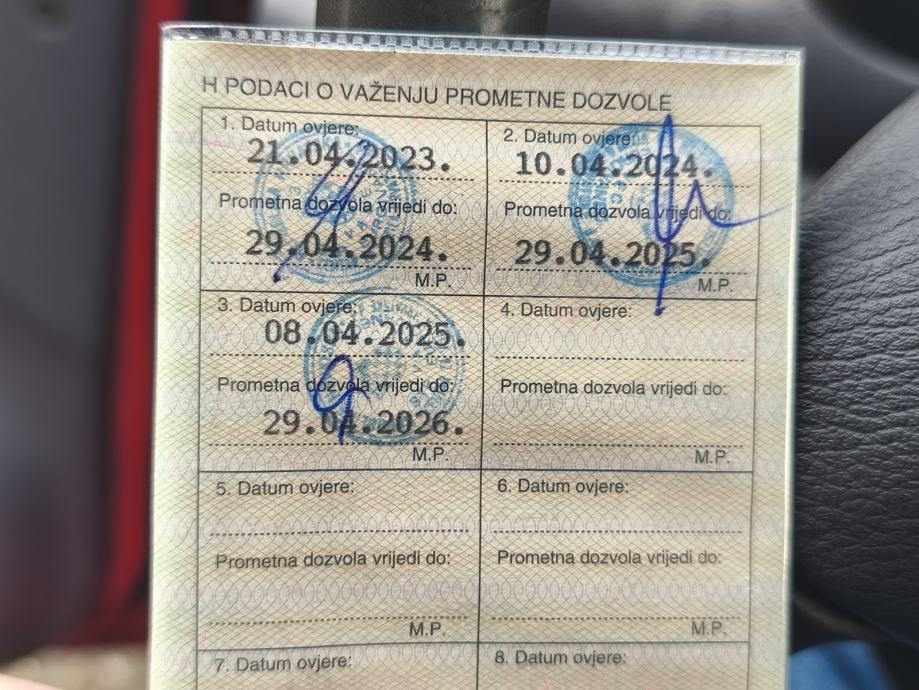 H PODACI O VAŽENJU PROMETNE DOZVOLE
1. Datum ovjere:
21.04.2023.
Prometna dozvola vrijedi do:
29.04.2024.
M.P.
2. Datum ovjere:
10.04.2024.
Prometna dozvola vrijedi do:
29.04.2025.
M.P.
3. Datum ovjere:
08.04.2025.
Prometna dozvola vrijedi do:
29.04.2026.
M.P.
4. Datum ovjere:
Prometna dozvola vrijedi do:
M.P.
5. Datum ovjere:
Prometna dozvola vrijedi do:
M.P.
6. Datum ovjere:
Prometna dozvola vrijedi do:
M.P.
7. Datum ovjere:
8. Datum ovjere: